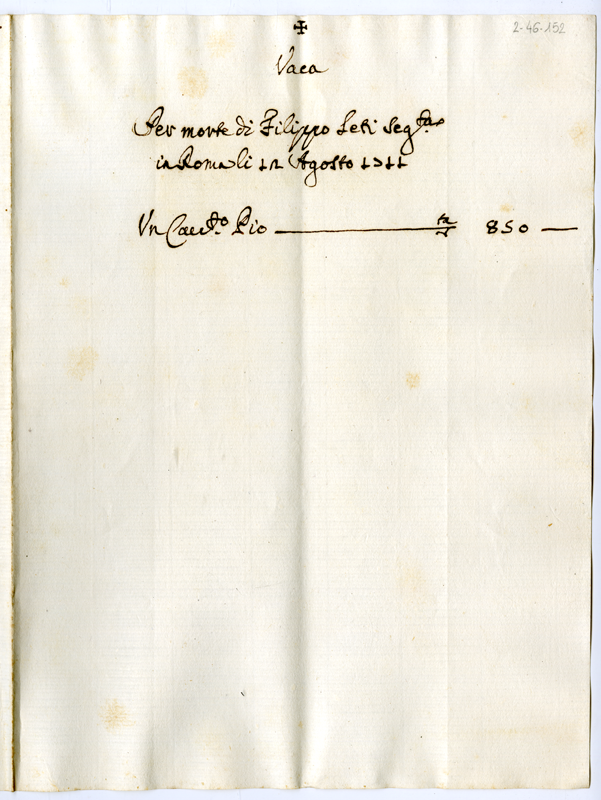 ✠
2-46-152
Vaca
Per morte di Filippo Leti Seg.ta
in Roma li 12 Agosto 1711
Un Cac.to Pio 850